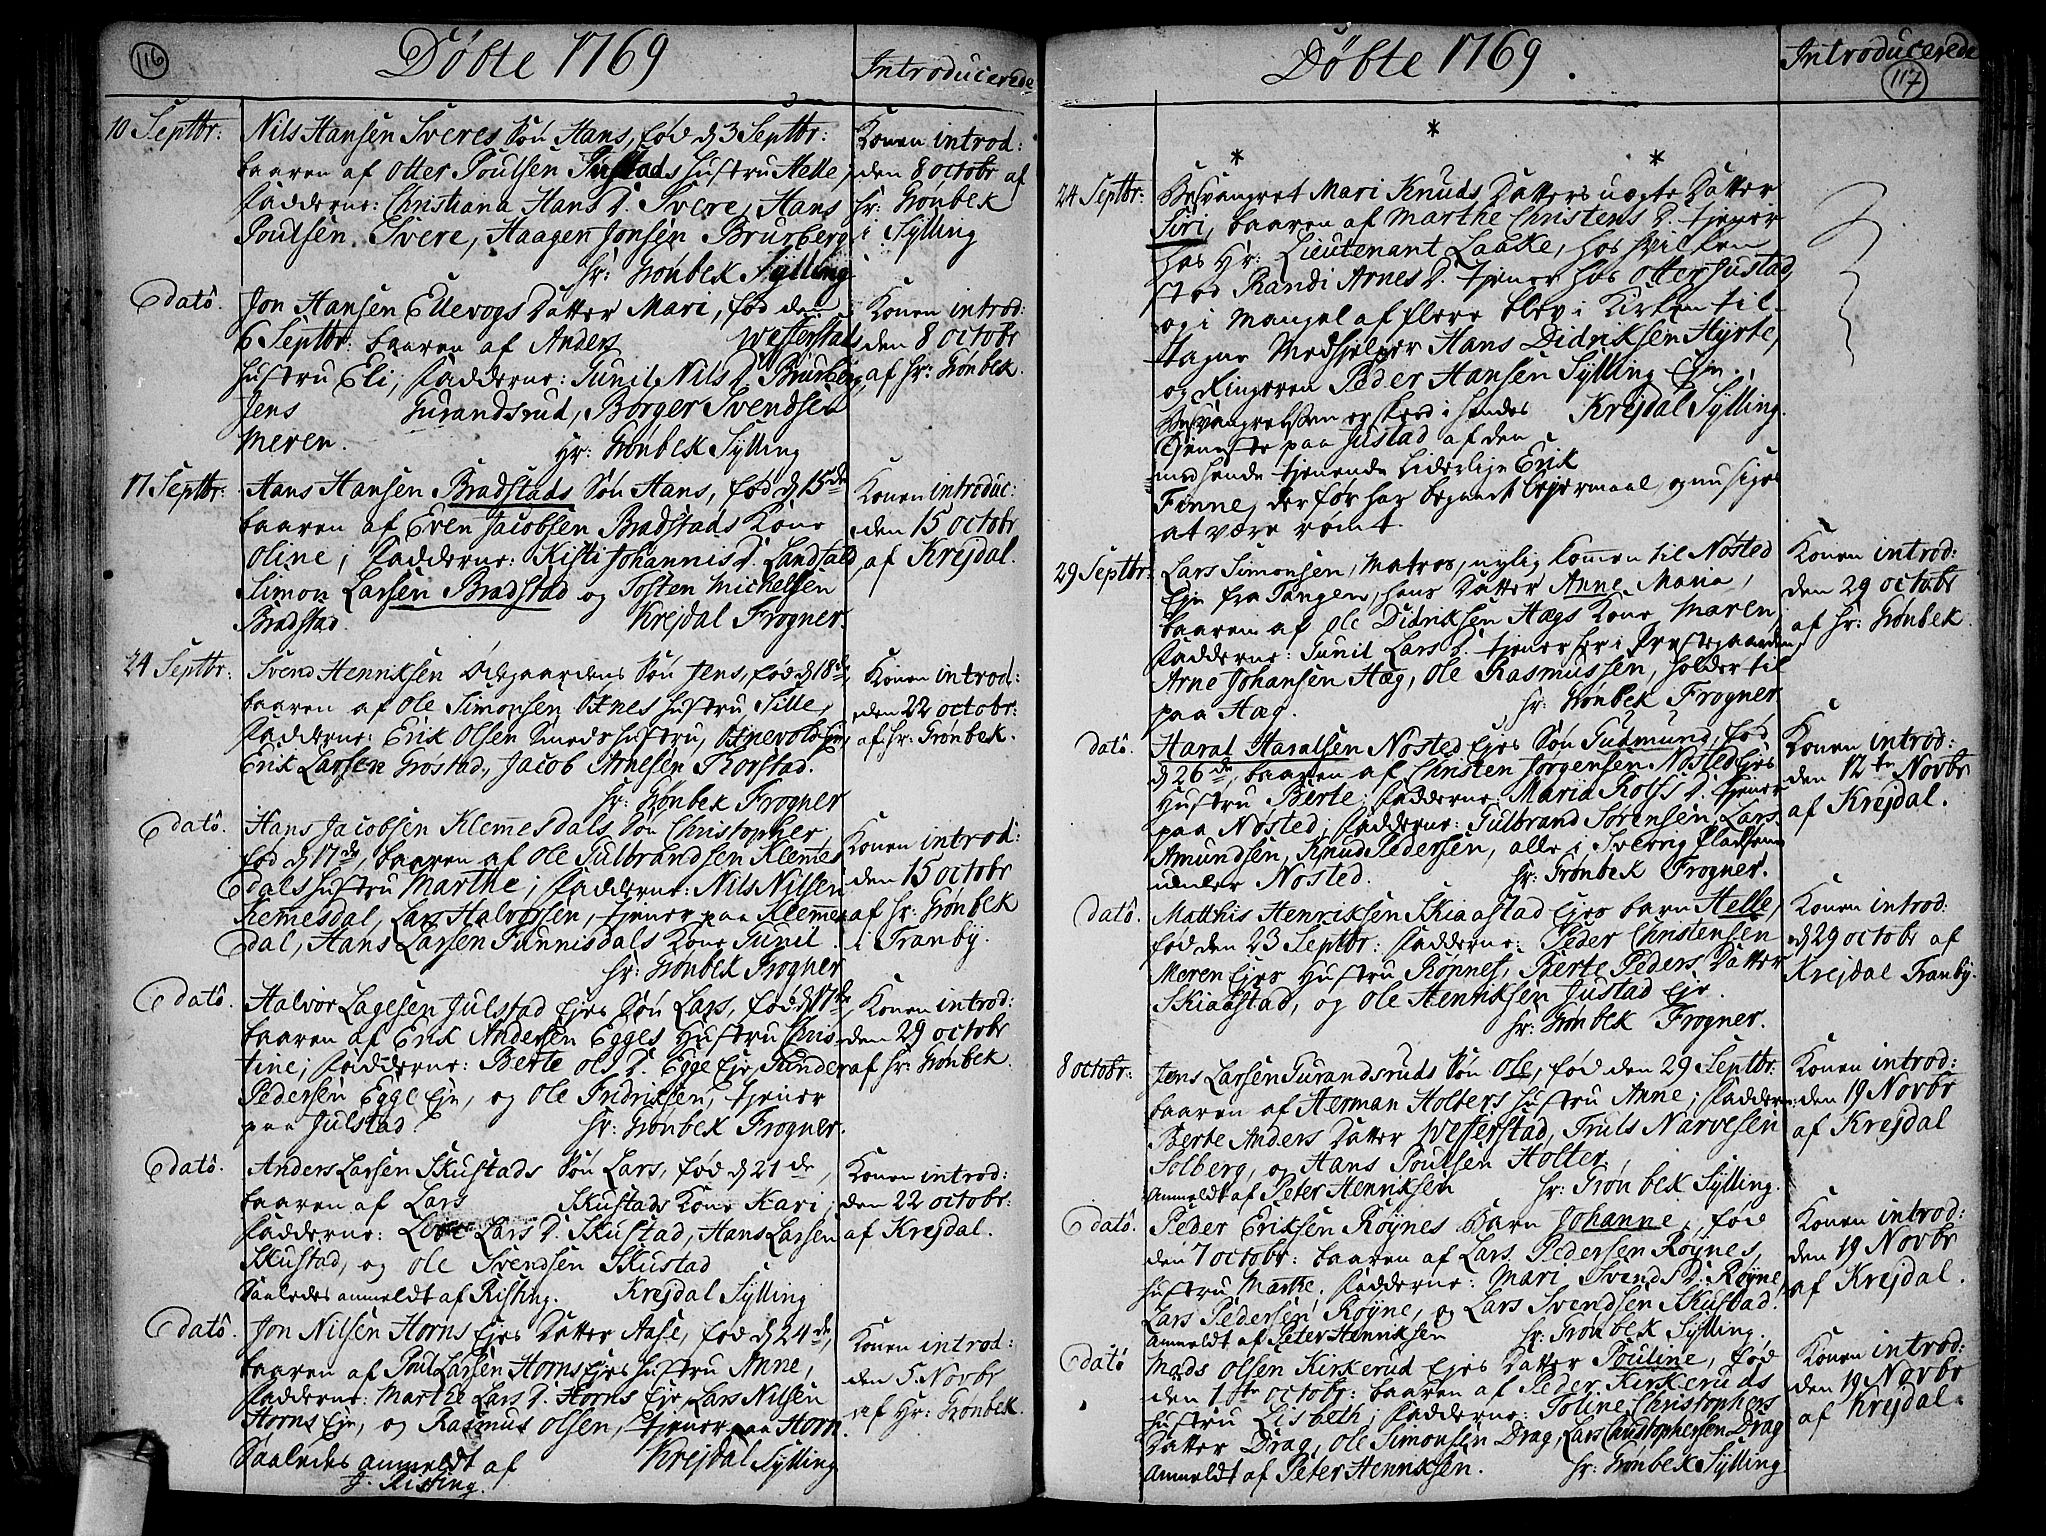 116
Døbte 1769
Introducerede
10 Septbr:
Nils Hansen Sveres Søn Hans, fød d 3 Septbr:
baaren af Otter Poulsen Justads Hustru Helle,
Fadderne: Christiana Hans D. Svere, Hans
Poulsen Svere, Haagen Jonsen Brurberg
Hr: Grønbek Sylling
Konen introd:
den 8 octobr af
Hr: Grønbek
i Sylling
Edatô.
Jon Hansen Ellevogs Datter Mari, fød den
6 Septbr: baaren af Anders Wefferstads
Hustru Eli; Fadderne: Gunil Nils D. Brurberg,
Jens Gurandsrud, Børger Svendsen
Meren.
Hr: Grønbek Sylling
Konen introd:
den 8 octobr
af Hr: Grønbek.
17 Septbr:
Hans Hansen Bradstads Søn Hans, fød d 15de
baaren af Even Jacobsen Bradstads Kone
Oline; Fadderne: Kisti Johannis D. Landfald
Simon Larsen Bradstad og Tosten Michelsen
Bradstad.
Krejdal Frogner.
Konen introduc:
den 15 octobr
af Krejdal.
24 Septbr:
Svend Henriksen Ødegaardens Søn Jens, fød d 18de,
baaren af Ole Simonsen Ofnes Hustru Sille,
Fadderne: Erik Olsen Smeds Hustru, Ofnevold Eje,
Erik Larsen Grostad, Jacob Arnesen Korstad.
Hr: Grønbek Frogner
Konen introd:
den 22 octobr:
af Hr: Grønbek.
Edatô.
Hans Jacobsen Klemesdals Søn Christopher,
fød d 17de, baaren af Ole Gulbrandsen Klemmes
dals Hustru Marthe; Fadderne: Nils Nilsen
Klemesdal, Lars Halvorsen, tjener paa Klemmes
dal, Hans Larsen Funnisdals Kone Gunil.
Hr: Grønbek Frogner
Konen introd:
den 15 octobr
af Hr: Grønbek
i Tranby.
Edatô.
Halvor Lagesen Julstad Ejes Søn Lars, fød d 17de,
baaren af Erik Andersen Egges Hustru Chris-
tine; Fadderne: Berte Ols D. Egge Eje, Gunder
Pedersen Egge Eje, og Ole Fridriksen, tjener
paa Julstad.
Hr: Grønbek Frogner.
Konen introd:
den 29 octobr
af Hr: Grønbek.
Edatô.
Anders Larsen Skustads Søn Lars, fød d 21de,
baaren af Lars Skustads Kone Kari;
Fadderne: Lars D. Skustad, Hans Larsen
Skustad, og Ole Svendsen Skustad
Saaledes anmeldt af Risting.
Krejdal Sylling
Konen introd:
den 22 octobr:
af Krejdal.
Edatô.
Jon Nilsen Horns Ejes Datter Aase, fød d 24de,
baaren af Poul Larsen Horns Ejes Hustru Anne,
Fadderne: Marthe Lars D. Horns Eje, Lars Nilsen
Horns Eje, og Rasmus Olsen, tjener paa Horn.
Saaledes anmeldt af
J. Risting.
Krejdal Sylling
Konen introd:
den 5 Novbr
af Hr: Grønbek.
Døbte 1769.
Introducerede
117
*
* *
24 Septbr:
Besvangret Mari Knuds Datters uægte Datter
Siri, baaren af Marthe Christens D. tjener
hos Hr: Lieutenant Laaske, hos hvilken
stod Randi Arnes D. tjener hos Otter Justad,
og i Mangel af flere blev i Kirken til-
tagne Medhjelper Hans Didriksen Hyrte,
og Ringeren Peder Hansen Sylling Eje.
Besvangrelsen er skeed i hendes
Krejdal Sylling.
Tjeneste paa Justad af den
med hende tjenende liderlige Erik
Finne, der før har begaaet lejermaal, og nu siges
at være rømt.
29 Septbr:
Lars Simonsen, Matros, nylig kommen til Nosted
Eje fra Tangen, hans Datter Anne Maria,
baaren af Ole Didriksen Hægs Kone Maren,
Fadderne: Gunil Lars D. tjener her i Præstegaarden,
Arne Johansen Hæg, Ole Rasmussen, holder til
paa Hæg.
Hr: Grønbek Frogner
Konen introd:
den 29 octobr
af Hr: Grønbek.
datô.
Haral Haralsen Nosted Ejes Søn Gudmund, fød
d 26de, baaren af Christen Jørgensen Nosted Ejes
Hustru Berte; Fadderne: Maria Rolfs D. tjener
paa Nøsted; Fadderne: Gulbrand Sørensen, Lars
Amundsen, Knud Pedersen, alle i Sverrig Pladsene
under Nosted.
Hr: Grønbek Frogner.
Konen introd:
den 12te Novbr
af Krejdal.
datô.
Matthis Henriksen Skiaastad Ejes barn Helle,
fød den 23 Septbr: Fadderne: Peder Christensen
Meren Ejes Hustru Rønnef, Berte Peders Datter
Skiaastad, og Ole Henriksen Justad Eje.
Hr: Grønbek Frogner.
Konen introd:
d 29 octobr af
Krejdal Tranby.
8 octobr:
Jens Larsen Gurandsruds Søn Ole, fød den 29 Septbr:
baaren af Herman Holters Hustru Anne; Fadderne:
Berte Anders Datter Wefferstad, Truls Narvesen
Solberg, og Hans Poulsen Holter,
Anmeldt af Peter Henriksen
Hr: Grønbek Sylling.
Konen introd:
den 19 Novbr
af Krejdal
Edatô.
Peder Eriksen Røynes Barn Johanne, fød
den 7 octobr: baaren af Lars Pedersen Røynes
Hustru Marthe, Fadderne: Mari Svends D. Røyne,
Lars Pedersen Røyne, og Lars Svendsen Skustad.
Anmeldt af Peter Henriksen
Hr: Grønbek Sylling.
Konen introd:
den 19 Novbr
af Krejdal.
Edatô
Mads Olsen Kirkerud Ejes Datter Pouline, fød
den 1ste octobr: baaren af Peder Kirkeruds
Hustru Lisbeth, Fadderne: Goline Christophers
Datter Drag, Ole Simonsen Drag, Lars Christophersen Drag
Anmeldt af Peter Henriksen.
Hr: Grønbek Sylling.
Konen introd:
den 19 Novbr
af Krejdal.